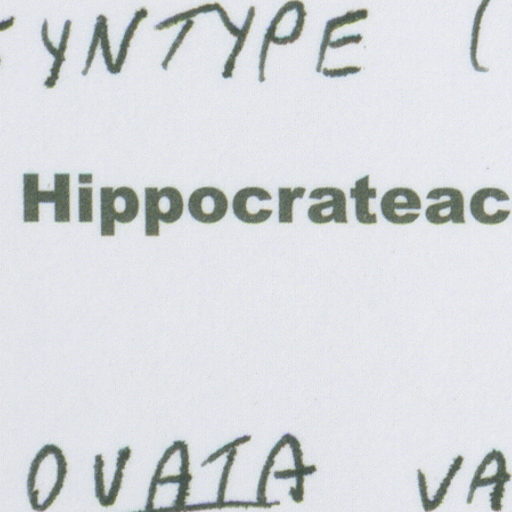 SYNTYPE (
Hippocrateac
OVATA VA